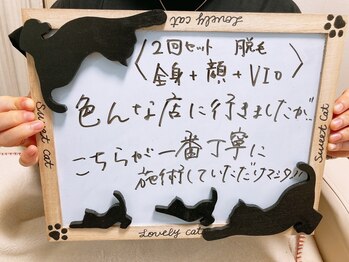 Lovely cat
2回セット 脱毛
〈全身+顔+VIO〉
色んな店に行きましたが!!
こちらが一番丁寧に
施術していただけマシタ!!
Sweet Cat
Sweet Cat
Lovely cat